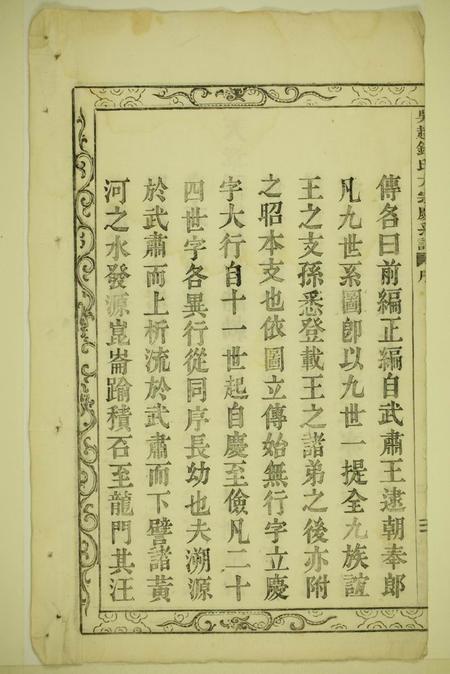 傳各曰前編正編自武肅王逮朝奉郎
凡九世系圖卽以九世一提全九族誼
王之支孫悉登載王之諸弟之後亦附
之昭本支也依圖立傳始無行字立慶
字大行自十一世起自慶至儉凡二十
四世字各異行從同序長幼也夫溯源
於武肅而上析流於武肅而下譬諸黃
河之水發源崑崙踰積石至龍門其汪